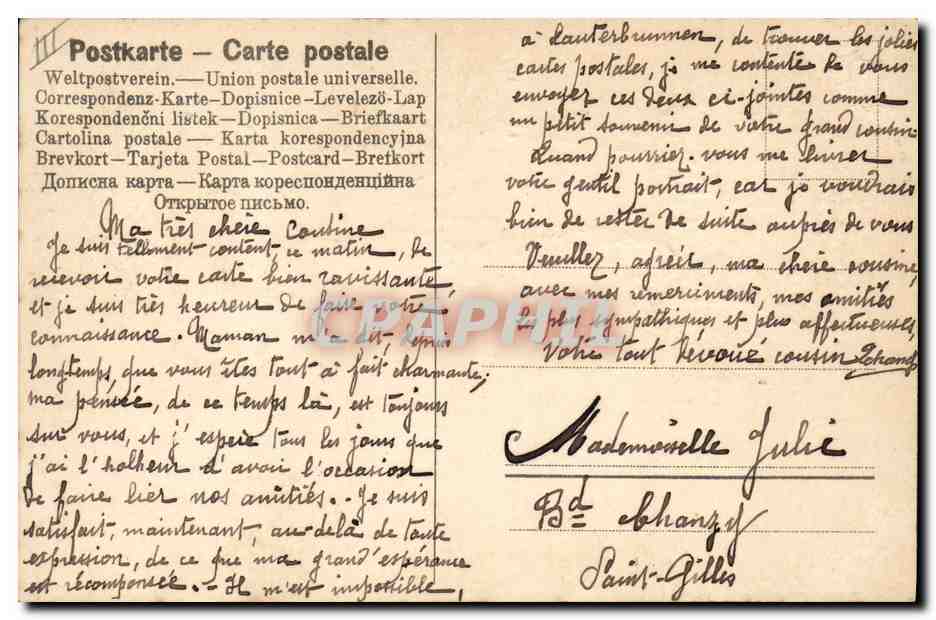 III
Postkarte – Carte postale
Weltpostverein.—Union postale universelle.
Correspondenz-Karte–Dopisnice–Levelező-Lap
Korespondenční listek–Dopisnica–Briefkaart
Cartolina postale – Karta korespondencyjna
Brevkort–Tarjeta Postal–Postcard–Brefkort
Дописна карта—Карта кореспонденційна
Открытое письмо.
Ma très chère Cousine
Je suis tellement content, ce matin, de
recevoir votre carte bien ravissante,
et je suis très heureux de faire votre
connaissance. Maman m'a dit, depuis
longtemps que vous êtes tout à fait charmante;
ma pensée, de ce temps là, est toujours
sur vous, et j'espère tous les jours que
j'ai l'honheur d'avoir l'occasion
de faire lier nos amitiés. – Je suis
satisfait, maintenant, au-delà de toute
expression, de ce que ma grand'espérance
est récompensée. – Il m'est impossible,
à Lauterbrunnen, de trouver les jolies
cartes postales, je me contente de vous
envoyer ces deux ci-jointes comme
un petit souvenir de votre grand cousin
Quand pourriez-vous me livrer
votre gentil portrait, car je voudrais
bien de rester de suite auprès de vous
Veuillez, agréer, ma chère cousine,
avec mes remerciments, mes amitiés
les plus sympathiques et plus affectueuses,
Votre tout devoué cousin
Mademoiselle Julie
Bd Chanzy
Saint-Gilles
CPAPHIL